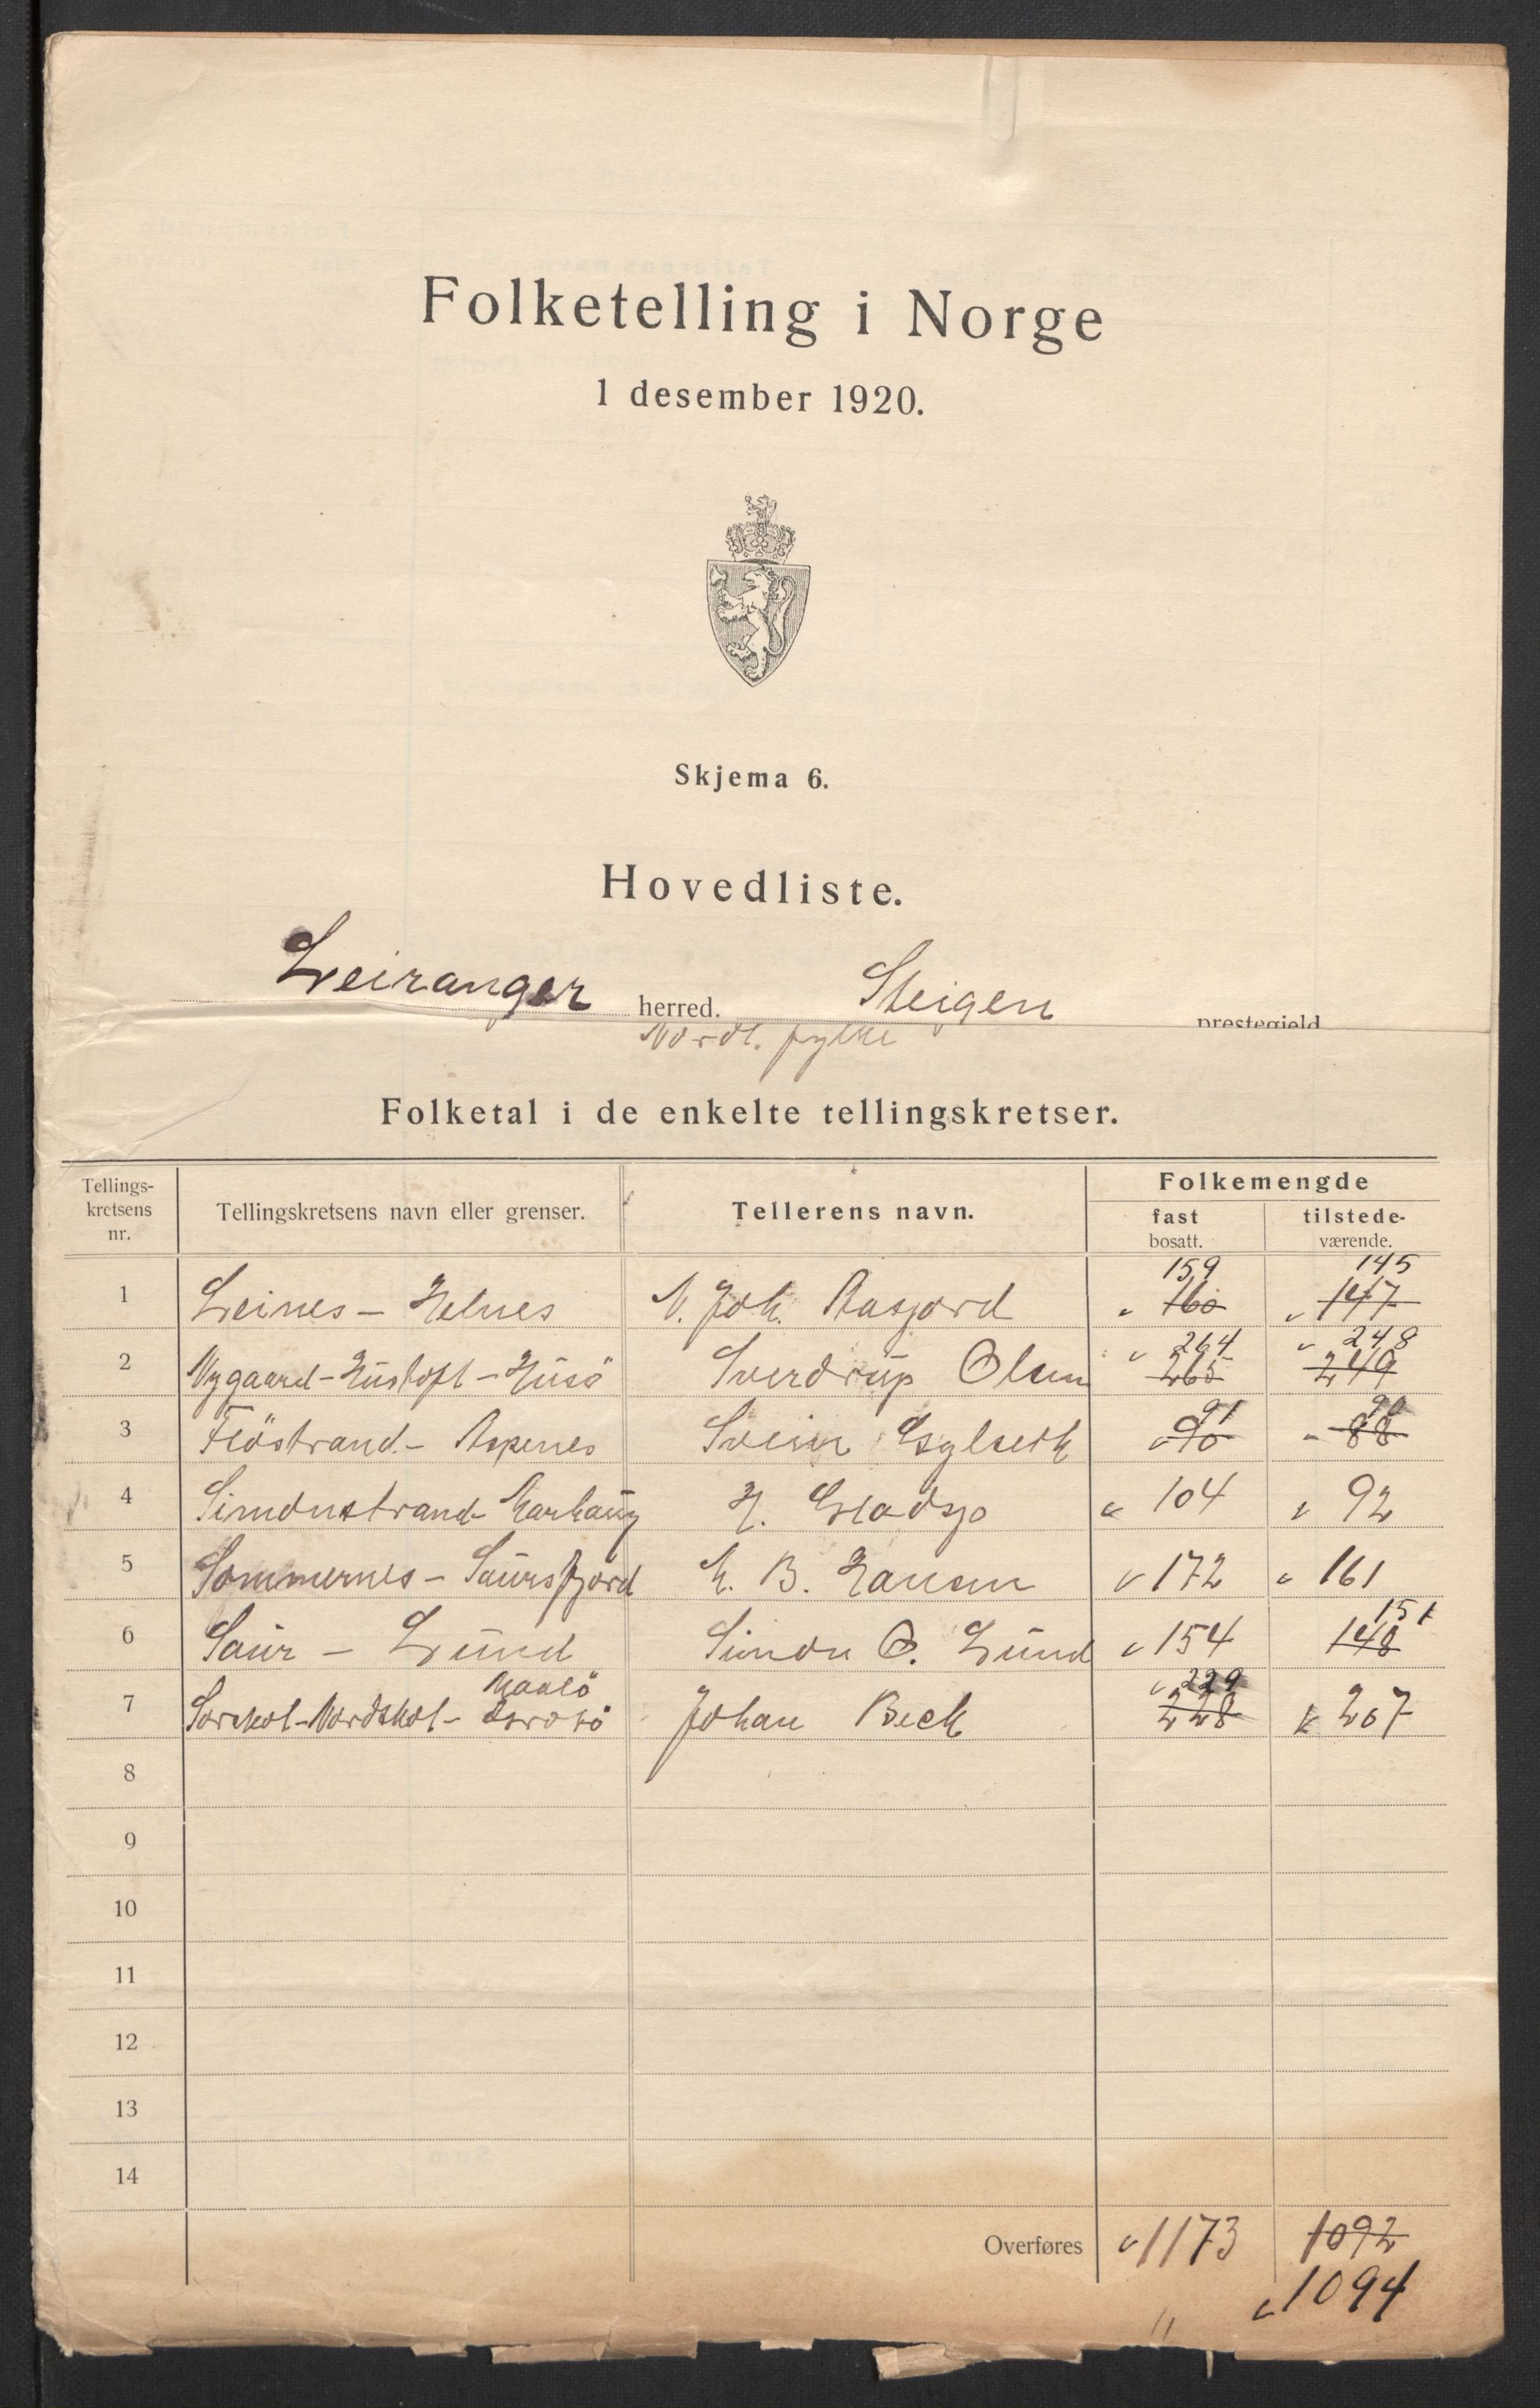 Folketelling i Norge
1 desember 1920.
Skjema 6.
Hovedliste.
Leiranger herred. Steigen prestegjeld
Nordl. fylke
Folketal i de enkelte tellingskretser.
Tellings-kretsens nr. Tellingskretsens navn eller grenser. Tellerens navn. Folkemengde fast bosatt. tilstede-værende.
159 145
1 Leines - Helnes N. Joh. Aasjord 160 147
264 248
2 Nygaard - Hustoft - Husö Sverdrup Olsen 265 249
91 90
3 Flöstrand - Aspenes Svein Gylseth 90 88
4 Simonstrand - H. Gladsjo 104 92
5 Sommernes - Saursfjord B. Hansen 172 161
151
6 Saur - Lund Simon O. Lund 154 148
Maalö 229
7 Sorskot - Nordskot - Johan Beck 228 207
8
9
10
11
12
13
14
Overføres 1173 1092
1094